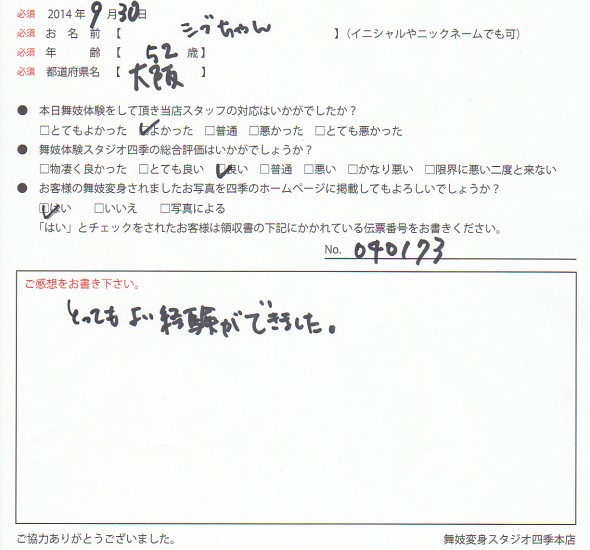 必須 2014年 9月 30日
必須 お名前【 シヅちゃん 】(イニシャルやニックネームでも可)
必須 年齢【 52 歳】
必須 都道府県名【 大阪 】
● 本日舞妓体験をして頂き当店スタッフの対応はいかがでしたか？
□とてもよかった ☑よかった □普通 □悪かった □とても悪かった
● 舞妓体験スタジオ四季の総合評価はいかがでしょうか？
□物凄く良かった □とても良い ☑良い □普通 □悪い □かなり悪い □限界に悪い二度と来ない
● お客様の舞妓変身されましたお写真を四季のホームページに掲載してもよろしいでしょうか？
☑はい □いいえ □写真による
「はい」とチェックをされたお客様は領収書の下記にかかれている伝票番号をお書きください。
No. 040173
ご感想をお書き下さい。
とってもよい経験ができました。
ご協力ありがとうございました。 舞妓変身スタジオ四季本店